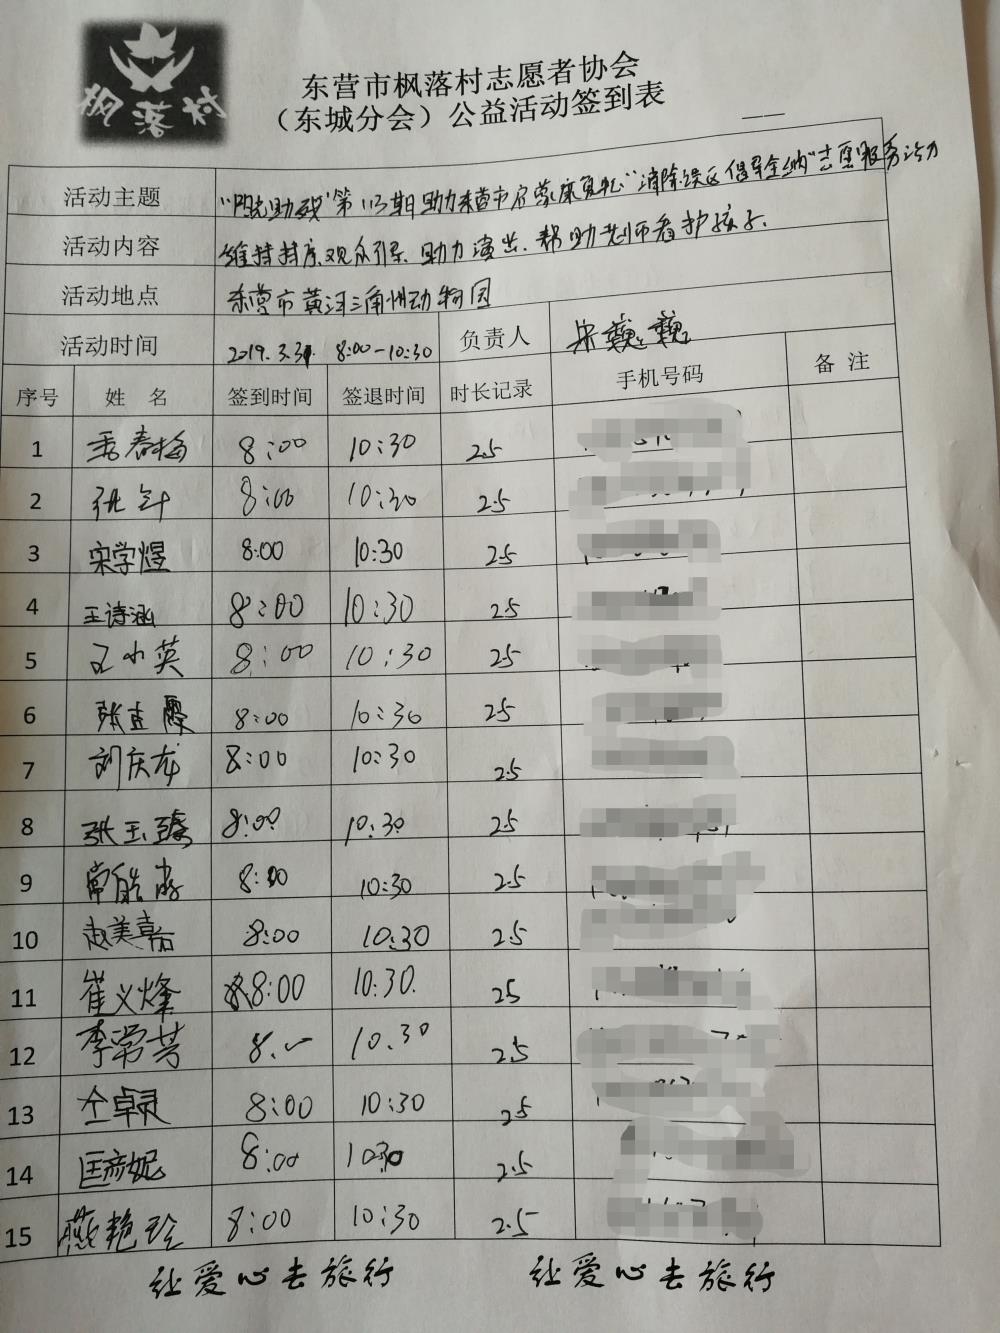 枫落村
东营市枫落村志愿者协会
（东城分会）公益活动签到表
活动主题 "阳光助残"第113期助力东营市启蒙康复中心"消除误区 倡导全纳"志愿服务活动
活动内容 维持秩序,观众引导,助力演出,帮助老师看护孩子.
活动地点 东营市黄河三角洲动物园
活动时间 2019.3.31 8:00-10:30 负责人 宋巍巍
序号 姓 名 签到时间 签退时间 时长记录 手机号码 备 注
1 季春梅 8:00 10:30 2.5
2 8:00 10:30 2.5
3 宋学煜 8:00 10:30 2.5
4 王诗涵 8:00 10:30 2.5
5 王小英 8:00 10:30 2.5
6 张直霞 8:00 10:30 2.5
7 刘庆龙 8:00 10:30 2.5
8 张玉臻 8:00 10:30 2.5
9 常皓 8:00 10:30 2.5
10 赵美嘉 8:00 10:30 2.5
11 崔义烽 8:00 10:30. 2.5
12 李常芳 8. 10.30 2.5
13 仝卓灵 8:00 10:30 2.5
14 匡彦妮 8:00 1030 2.5
15 燕艳玲 8:00 10:30 2.5
让爱心去旅行 让爱心去旅行